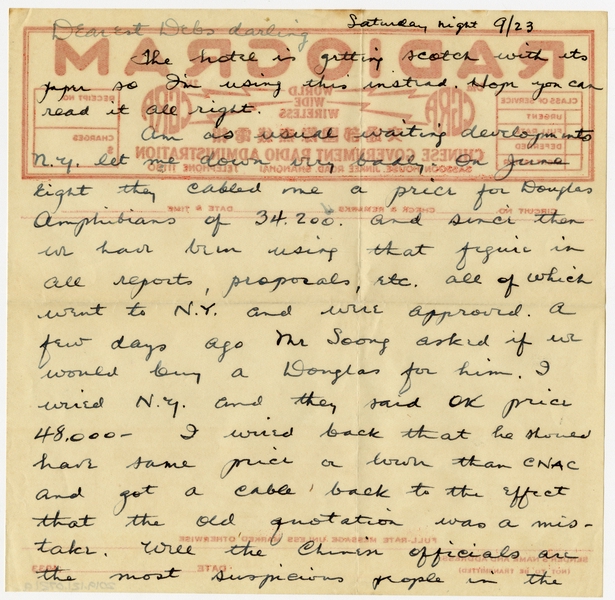 Saturday night 9/23
Dearest Debs darling
The hotel is getting scotch with its
paper so I'm using this instead. Hope you can
read it all right.
Am as usual waiting developments
N.Y. let me down very badly. On June
Eight they cabled me a price for Douglas
Amphibians of 34.200. and since then
we have been using that figure in
all reports, proposals, etc. all of which
went to N.Y. and were approved. A
few days ago Mr Soong asked if we
would buy a Douglas for him. I
wried N.Y. and they said OK price
48.000— I wried back that he should
have same price or lower than CNAC
and got a cable back to the effect
that the old quotation was a mis-
take. Well the Chinese officials are
the most suspicious people in the
RADIOGRAM
WORLD
WIDE
WIRELESS
CGRA
CGRA
CHINESE GOVERNMENT RADIO ADMINISTRATION
SASSOON HOUSE, JINKEE ROAD, SHANGHAI
TELEPHONE
RECEIPT NO.
CHARGES
$
CLASS OF SERVICE
URGENT
ORDINARY
DEFERRED
CIRCUIT NO.
CHECK & REMARKS
DATE & TIME
FULL-RATE MESSAGE UNLESS MARKED OTHERWISE
SENDER'S NAME AND ADDRESS
(NOT TO BE TRANSMITTED)
DATE